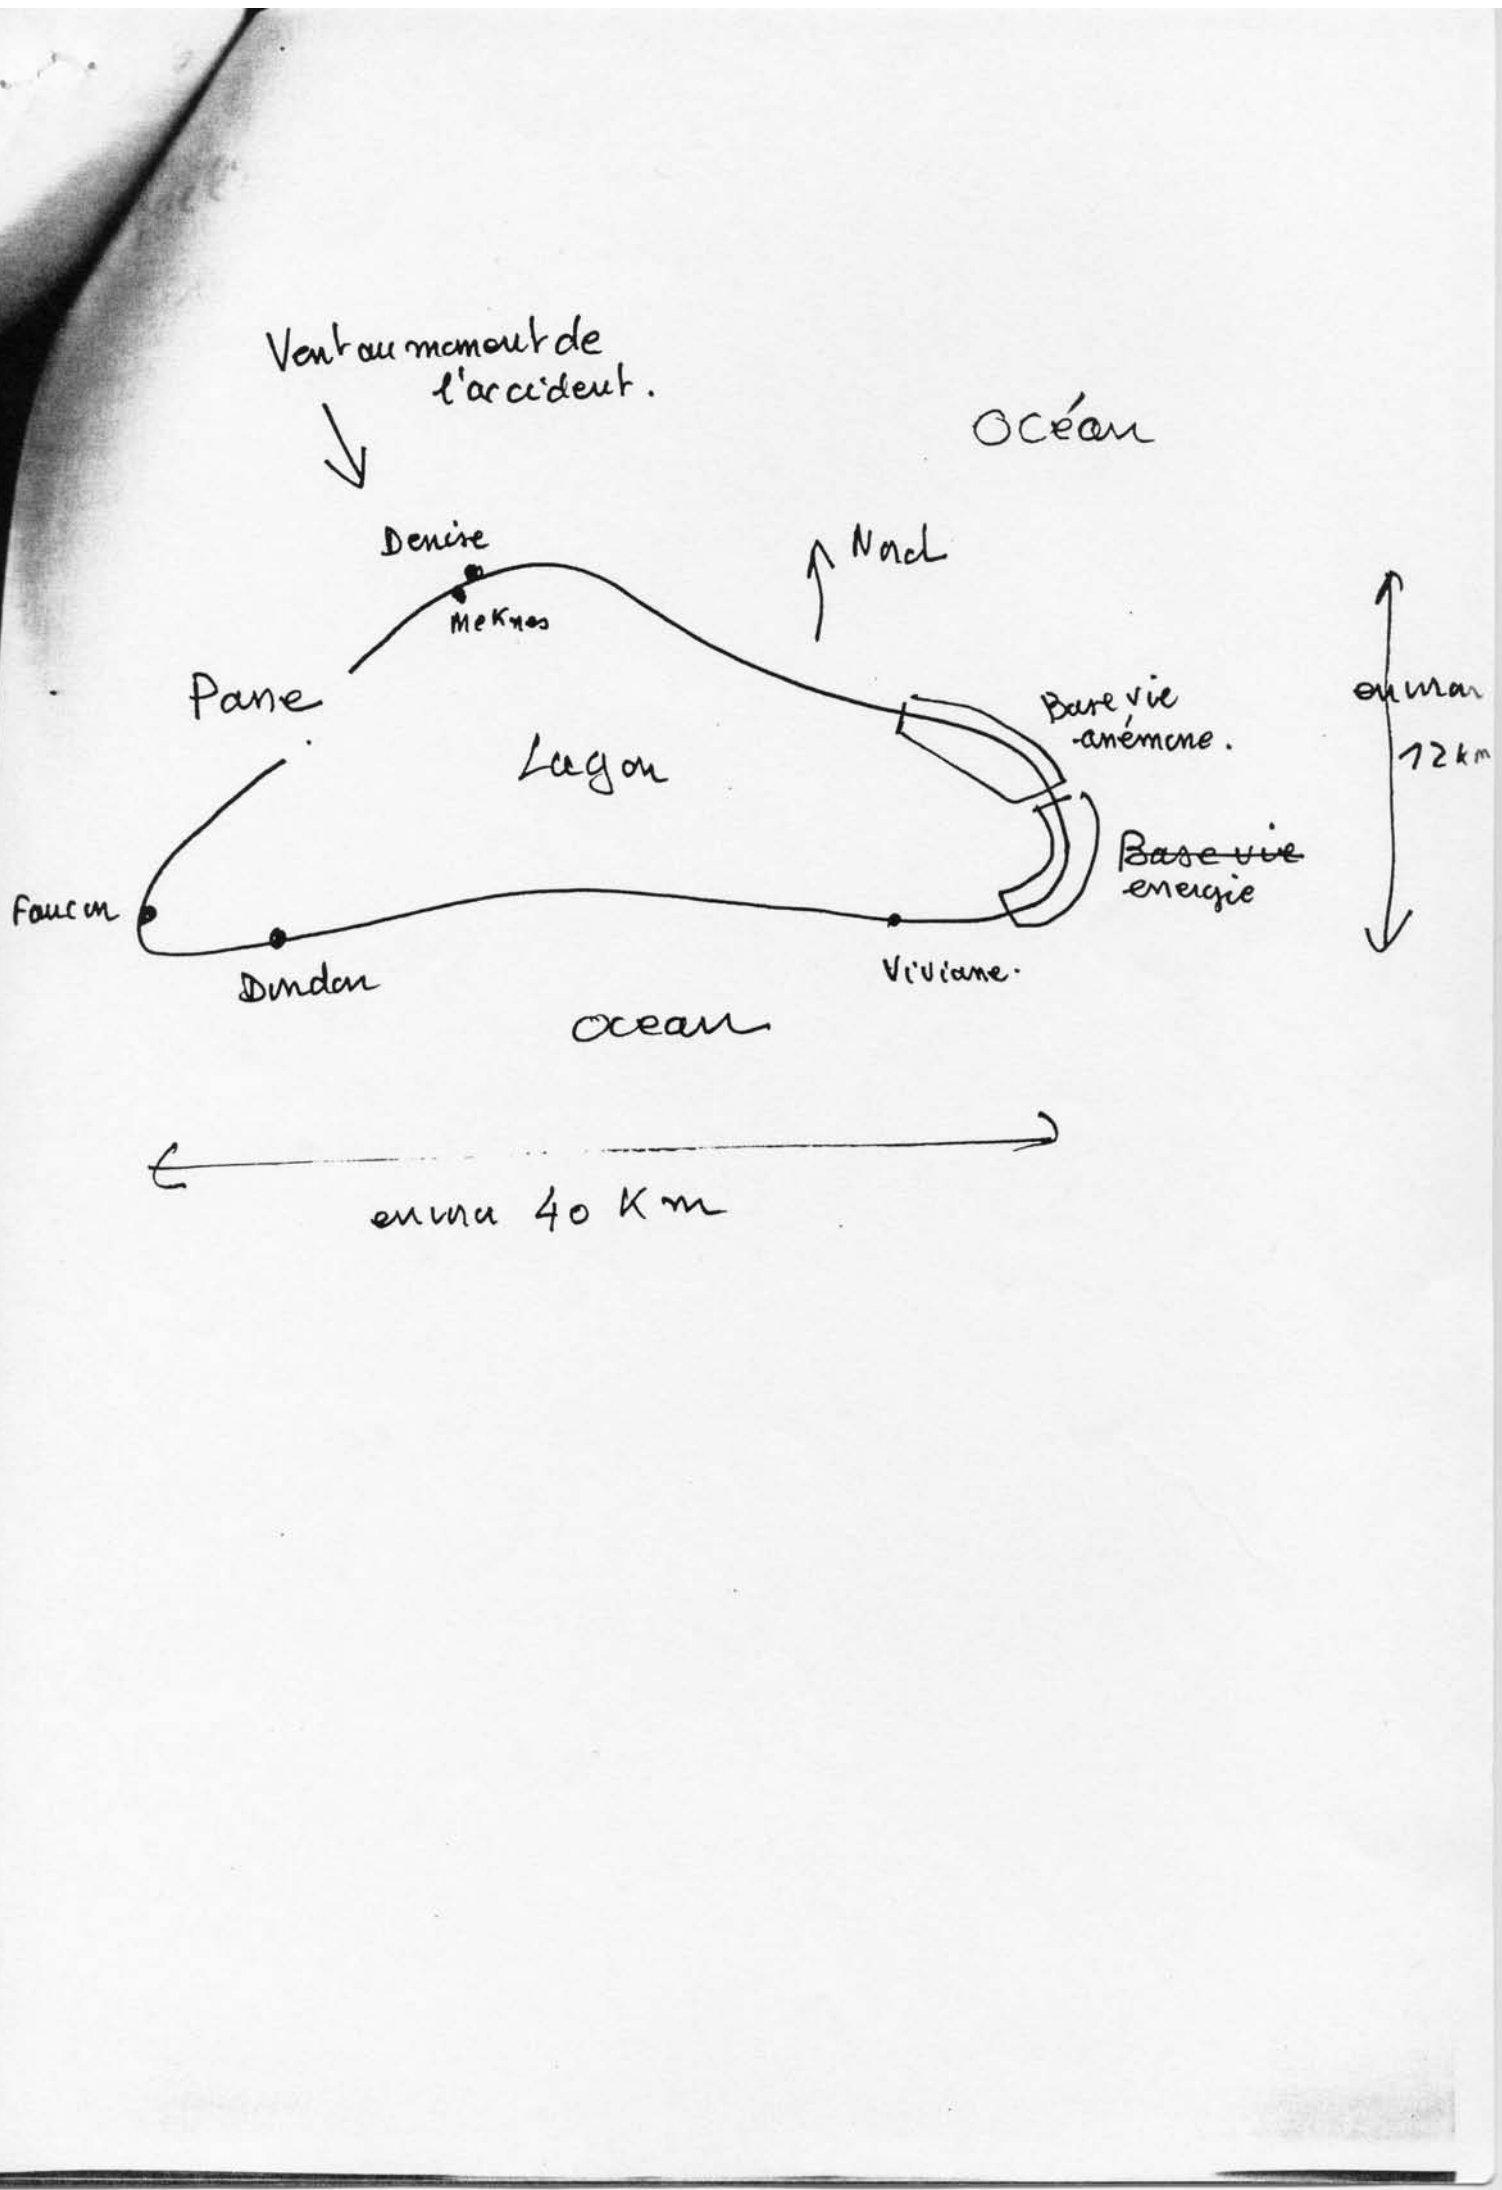 Vent au moment de
l'accident.
Océan
Denise
Nord
Meknes
Passe
Base vie
anémone.
environ
12 km
Lagon
Base vie
energie
Faucon
Dindon
Viviane.
ocean
environ 40 Km